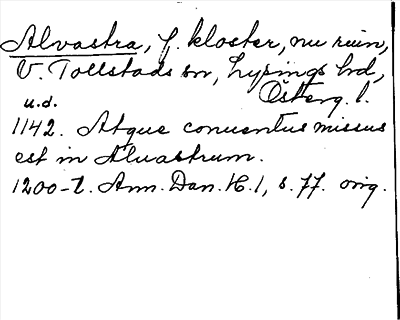 Alvastra, f. kloster, nu ruin,
V. Tollstads sn, Lysings hd,
Österg. l.
u.d.
1142. Atque conuentus missus
est in Aluastrum.
1200-t. Ann. Dan. H. 1, s. 77. orig.